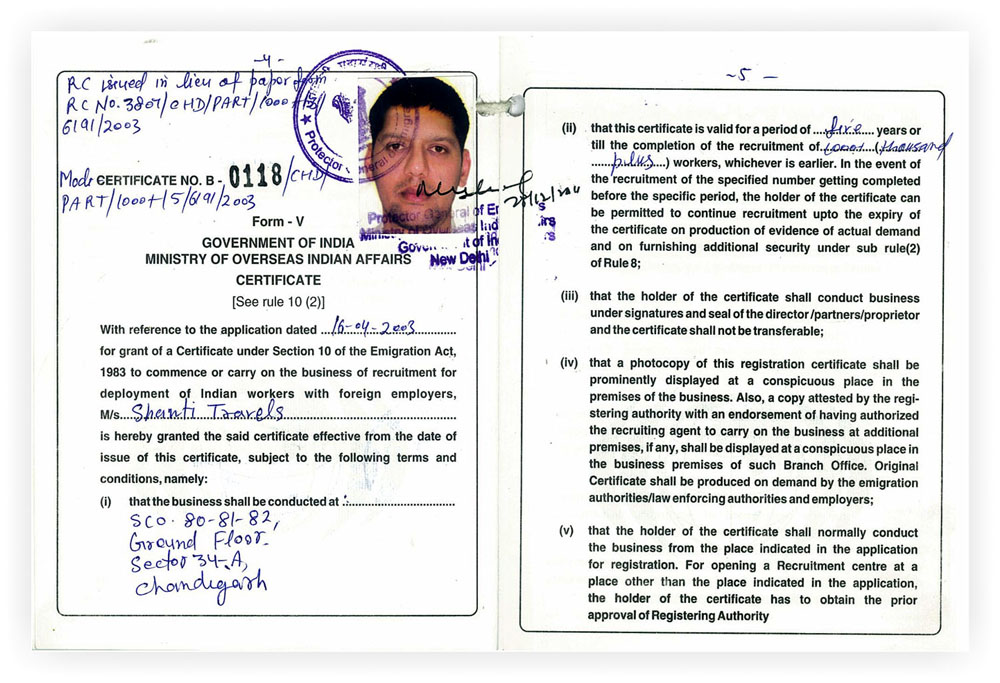 -4-
RC issued in lieu of paper form
RC No. 3807/CHD/PART/1000+/5/
6191/2003
CERTIFICATE NO. B - 0118/CHD/
PART/1000+/5/6191/2003
Form - V
GOVERNMENT OF INDIA
MINISTRY OF OVERSEAS INDIAN AFFAIRS
CERTIFICATE
[See rule 10 (2)]
With reference to the application dated ...16-04-2003...
for grant of a Certificate under Section 10 of the Emigration Act,
1983 to commence or carry on the business of recruitment for
deployment of Indian workers with foreign employers,
M/s...Shanti Travels...
is hereby granted the said certificate effective from the date of
issue of this certificate, subject to the following terms and
conditions, namely:
(i) that the business shall be conducted at :...
SCO. 80-81-82,
Ground Floor.
Sector 34-A,
Chandigarh
Protector General of Em
Ministry of Overseas Ind
Government of In
New Delhi
-5-
(ii) that this certificate is valid for a period of ....five.... years or
till the completion of the recruitment of..1000+..(thousand
.......plus....) workers, whichever is earlier. In the event of
the recruitment of the specified number getting completed
before the specific period, the holder of the certificate can
be permitted to continue recruitment upto the expiry of
the certificate on production of evidence of actual demand
and on furnishing additional security under sub rule(2)
of Rule 8;
(iii) that the holder of the certificate shall conduct business
under signatures and seal of the director/partners/proprietor
and the certificate shall not be transferable;
(iv) that a photocopy of this registration certificate shall be
prominently displayed at a conspicuous place in the
premises of the business. Also, a copy attested by the regi-
stering authority with an endorsement of having authorized
the recruiting agent to carry on the business at additional
premises, if any, shall be displayed at a conspicuous place in
the business premises of such Branch Office. Original
Certificate shall be produced on demand by the emigration
authorities/law enforcing authorities and employers;
(v) that the holder of the certificate shall normally conduct
the business from the place indicated in the application
for registration. For opening a Recruitment centre at a
place other than the place indicated in the application,
the holder of the certificate has to obtain the prior
approval of Registering Authority